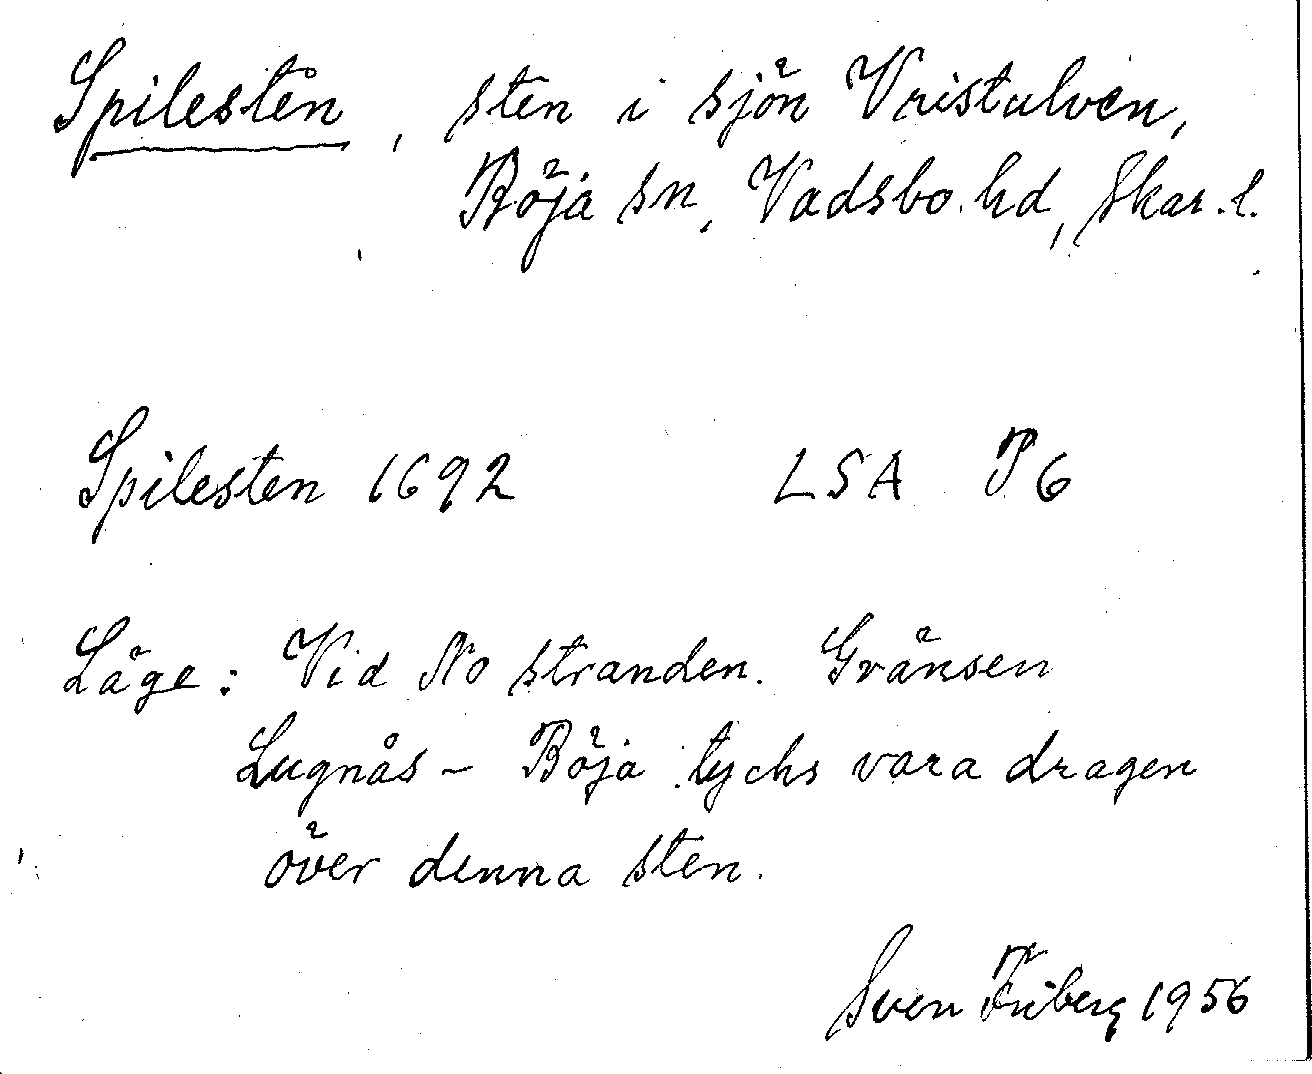 Spilesten, sten i sjön Vristulven,
Böja sn, Vadsbo hd, Skar. l.
Spilesten 1692 LSA P6
Läge: Vid No stranden. Gränsen
Lugnås - Böja tycks vara dragen
över denna sten.
Sven Friberg 1956